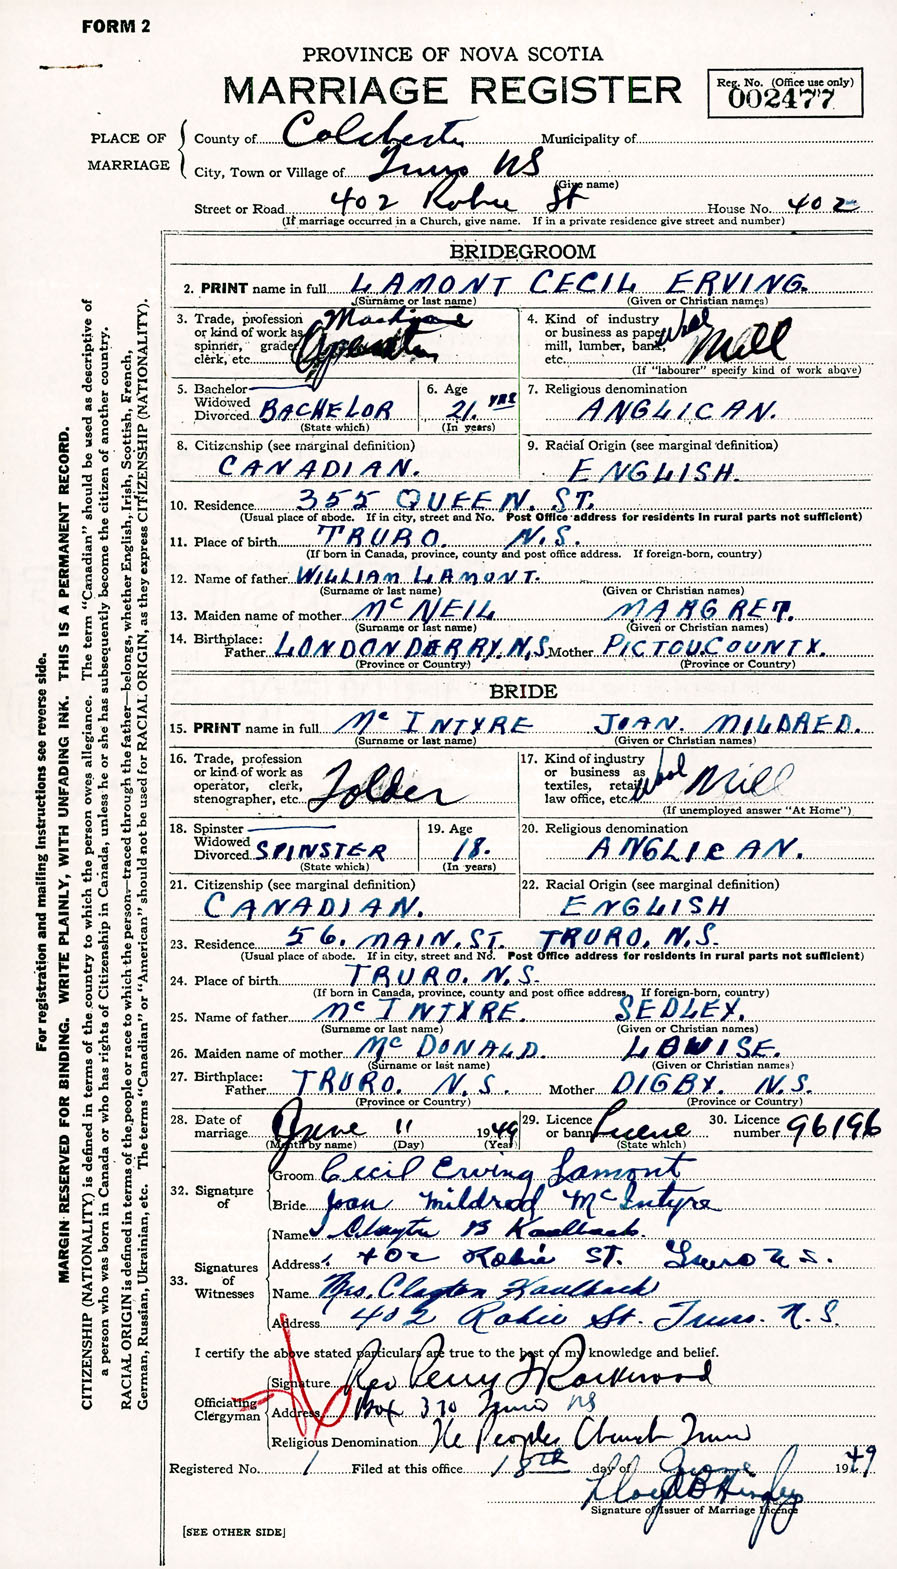 FORM 2
PROVINCE OF NOVA SCOTIA
MARRIAGE REGISTER
Reg. No. (Office use only)
002477
PLACE OF MARRIAGE
County of Colchester Municipality of
City, Town or Village of Truro NS
(Give name)
Street or Road 402 Robie St House No. 402
(If marriage occurred in a Church, give name. If in a private residence give street and number)
BRIDEGROOM
2. PRINT name in full LAMONT CECIL ERVING.
(Surname or last name) (Given or Christian names)
3. Trade, profession or kind of work as spinner, grader, clerk, etc. Machine Operator
4. Kind of industry or business as paper mill, lumber, bank, etc. Wool Mill
(If "labourer" specify kind of work above)
5. Bachelor Widowed Divorced BACHELOR
(State which)
6. Age 21. YRS
(In years)
7. Religious denomination ANGLICAN.
8. Citizenship (see marginal definition) CANADIAN.
9. Racial Origin (see marginal definition) ENGLISH.
10. Residence 355 QUEEN. ST.
(Usual place of abode. If in city, street and No. Post Office address for residents in rural parts not sufficient)
11. Place of birth TRURO. N.S.
(If born in Canada, province, county and post office address. If foreign-born, country)
12. Name of father WILLIAM LAMONT.
(Surname or last name) (Given or Christian names)
13. Maiden name of mother McNEIL MARGRET.
(Surname or last name) (Given or Christian names)
14. Birthplace: Father LONDONDERRY. N.S. Mother PICTOU COUNTY.
(Province or Country) (Province or Country)
BRIDE
15. PRINT name in full McINTYRE JOAN. MILDRED.
(Surname or last name) (Given or Christian names)
16. Trade, profession or kind of work as operator, clerk, stenographer, etc. Folder
17. Kind of industry or business as textiles, retail, law office, etc. Wool Mill
(If unemployed answer "At Home")
18. Spinster Widowed Divorced SPINSTER
(State which)
19. Age 18.
(In years)
20. Religious denomination ANGLICAN.
21. Citizenship (see marginal definition) CANADIAN.
22. Racial Origin (see marginal definition) ENGLISH
23. Residence 56. MAIN. ST. TRURO. N.S.
(Usual place of abode. If in city, street and No. Post Office address for residents in rural parts not sufficient)
24. Place of birth TRURO. N.S.
(If born in Canada, province, county and post office address. If foreign-born, country)
25. Name of father McINTYRE. SEDLEY.
(Surname or last name) (Given or Christian names)
26. Maiden name of mother McDONALD. LOWISE.
(Surname or last name) (Given or Christian names)
27. Birthplace: Father TRURO. N.S. Mother DIGBY. N.S.
(Province or Country) (Province or Country)
28. Date of marriage June 11 1949
(Month by name) (Day) (Year)
29. Licence or banns
(State which)
30. Licence number 96196
32. Signature of
Groom Cecil Erving Lamont
Bride Joan Mildred McIntyre
33. Signatures of Witnesses
Name Clayton B Kaulback.
Address 402 Robie ST. Truro N.S.
Name Mrs. Clayton Kaulback
Address 402 Robie St. Truro. N.S.
I certify the above stated particulars are true to the best of my knowledge and belief.
Officiating Clergyman
Signature Rev Perry F Rockwood
Address Box 370 Truro NS
Religious Denomination The Peoples Church Truro
Registered No. 1 Filed at this office 18th day of June 1949
Lloyd B Hingley
Signature of Issuer of Marriage Licence
[SEE OTHER SIDE]
For registration and mailing instructions see reverse side.
MARGIN RESERVED FOR BINDING. WRITE PLAINLY, WITH UNFADING INK. THIS IS A PERMANENT RECORD.
CITIZENSHIP (NATIONALITY) is defined in terms of the country to which the person owes allegiance. The term "Canadian" should be used as descriptive of
a person who was born in Canada or who has rights of Citizenship in Canada, unless he or she has subsequently become the citizen of another country.
RACIAL ORIGIN is defined in terms of the people or race to which the person—traced through the father—belongs, whether English, Irish, Scottish, French,
German, Russian, Ukrainian, etc. The terms "Canadian" or "American" should not be used for RACIAL ORIGIN, as they express CITIZENSHIP (NATIONALITY).